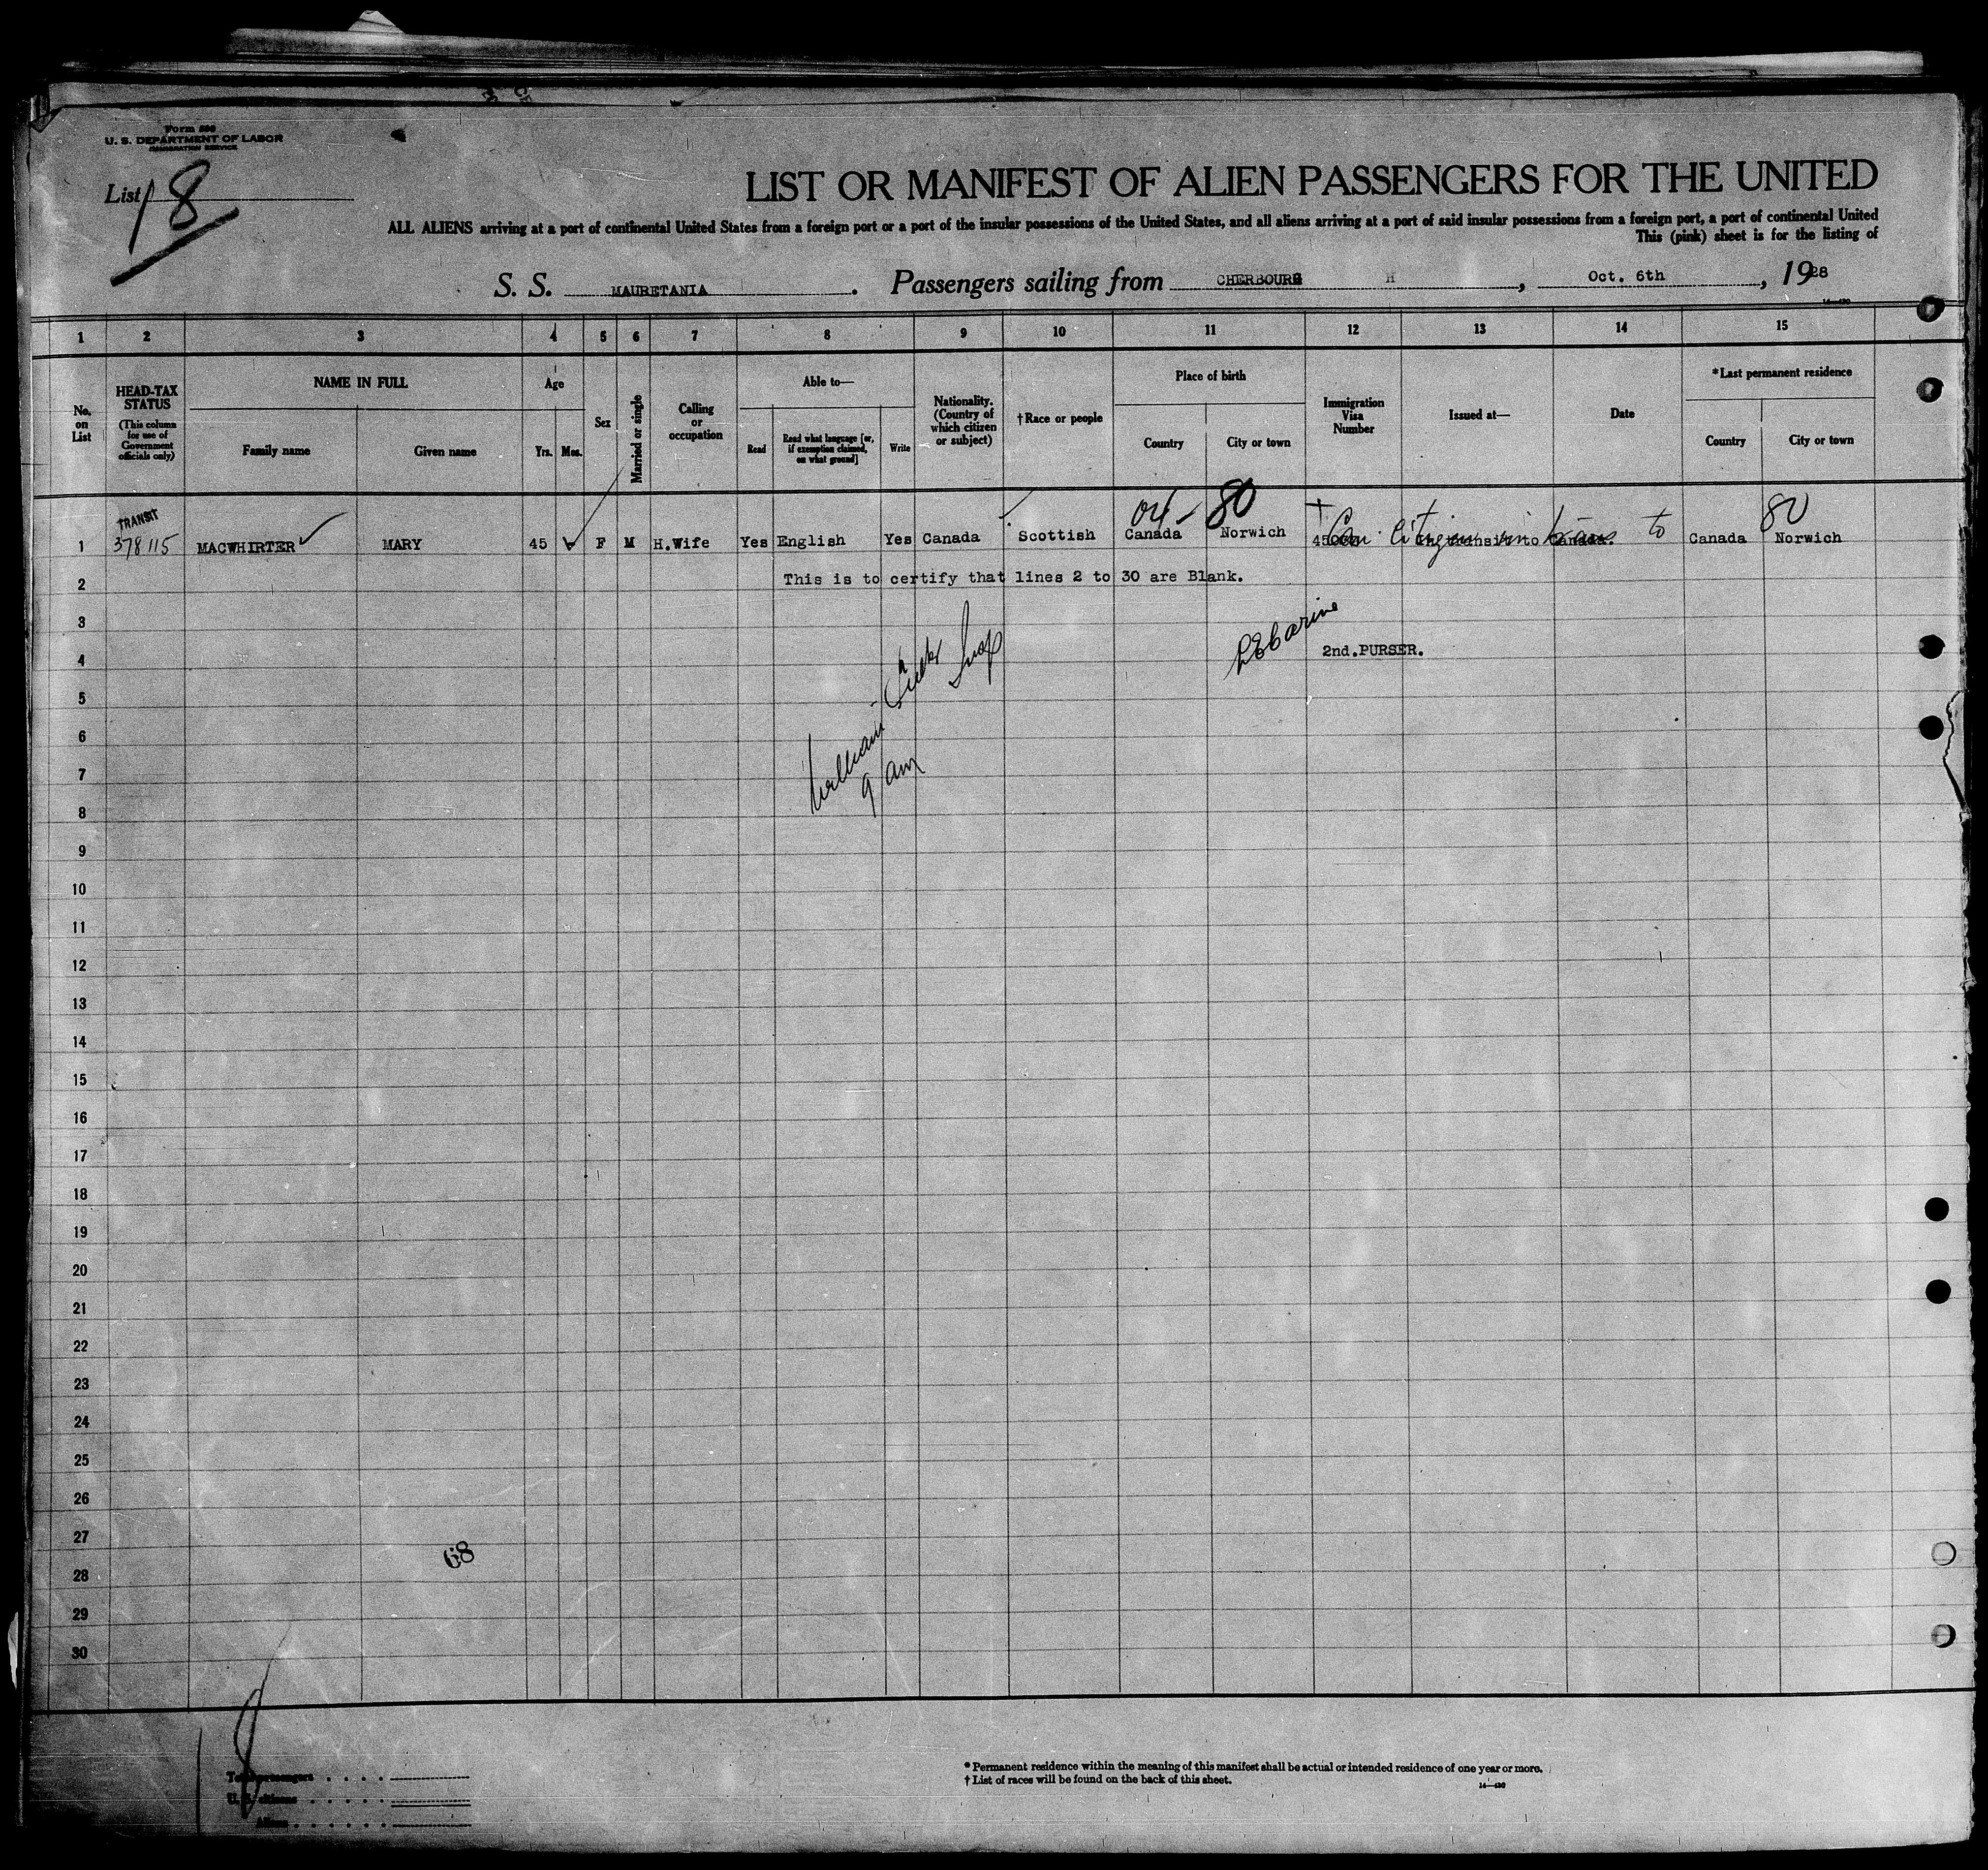 Form 500
U. S. DEPARTMENT OF LABOR
IMMIGRATION SERVICE
List 18
LIST OR MANIFEST OF ALIEN PASSENGERS FOR THE UNITED
ALL ALIENS arriving at a port of continental United States from a foreign port or a port of the insular possessions of the United States, and all aliens arriving at a port of said insular possessions from a foreign port, a port of continental United
This (pink) sheet is for the listing of
S. S. MAURETANIA. Passengers sailing from CHERBOURG H, Oct. 6th, 1928
1 2 3 4 5 6 7 8 9 10 11 12 13 14 15
No. on List
HEAD-TAX STATUS
(This column for use of Government officials only)
NAME IN FULL
Family name Given name
Age
Yrs. Mos.
Sex
Married or single
Calling or occupation
Able to—
Read
Read what language [or, if exemption claimed, on what ground]
Write
Nationality. (Country of which citizen or subject)
†Race or people
Place of birth
Country City or town
Immigration Visa Number
Issued at—
Date
*Last permanent residence
Country City or town
TRANSIT 04-80 80
1 378115 MACWHIRTER MARY 45 F M H.Wife Yes English Yes Canada Scottish Canada Norwich Can Citizen in trans to Canada Norwich
2 This is to certify that lines 2 to 30 are Blank.
3
4 2nd.PURSER.
5
6
7 William
8 9 am
9
10
11
12
13
14
15
16
17
18
19
20
21
22
23
24
25
26
27
68
28
29
30
Total passengers
U. S. citizens
Aliens
* Permanent residence within the meaning of this manifest shall be actual or intended residence of one year or more.
† List of races will be found on the back of this sheet.
14—430